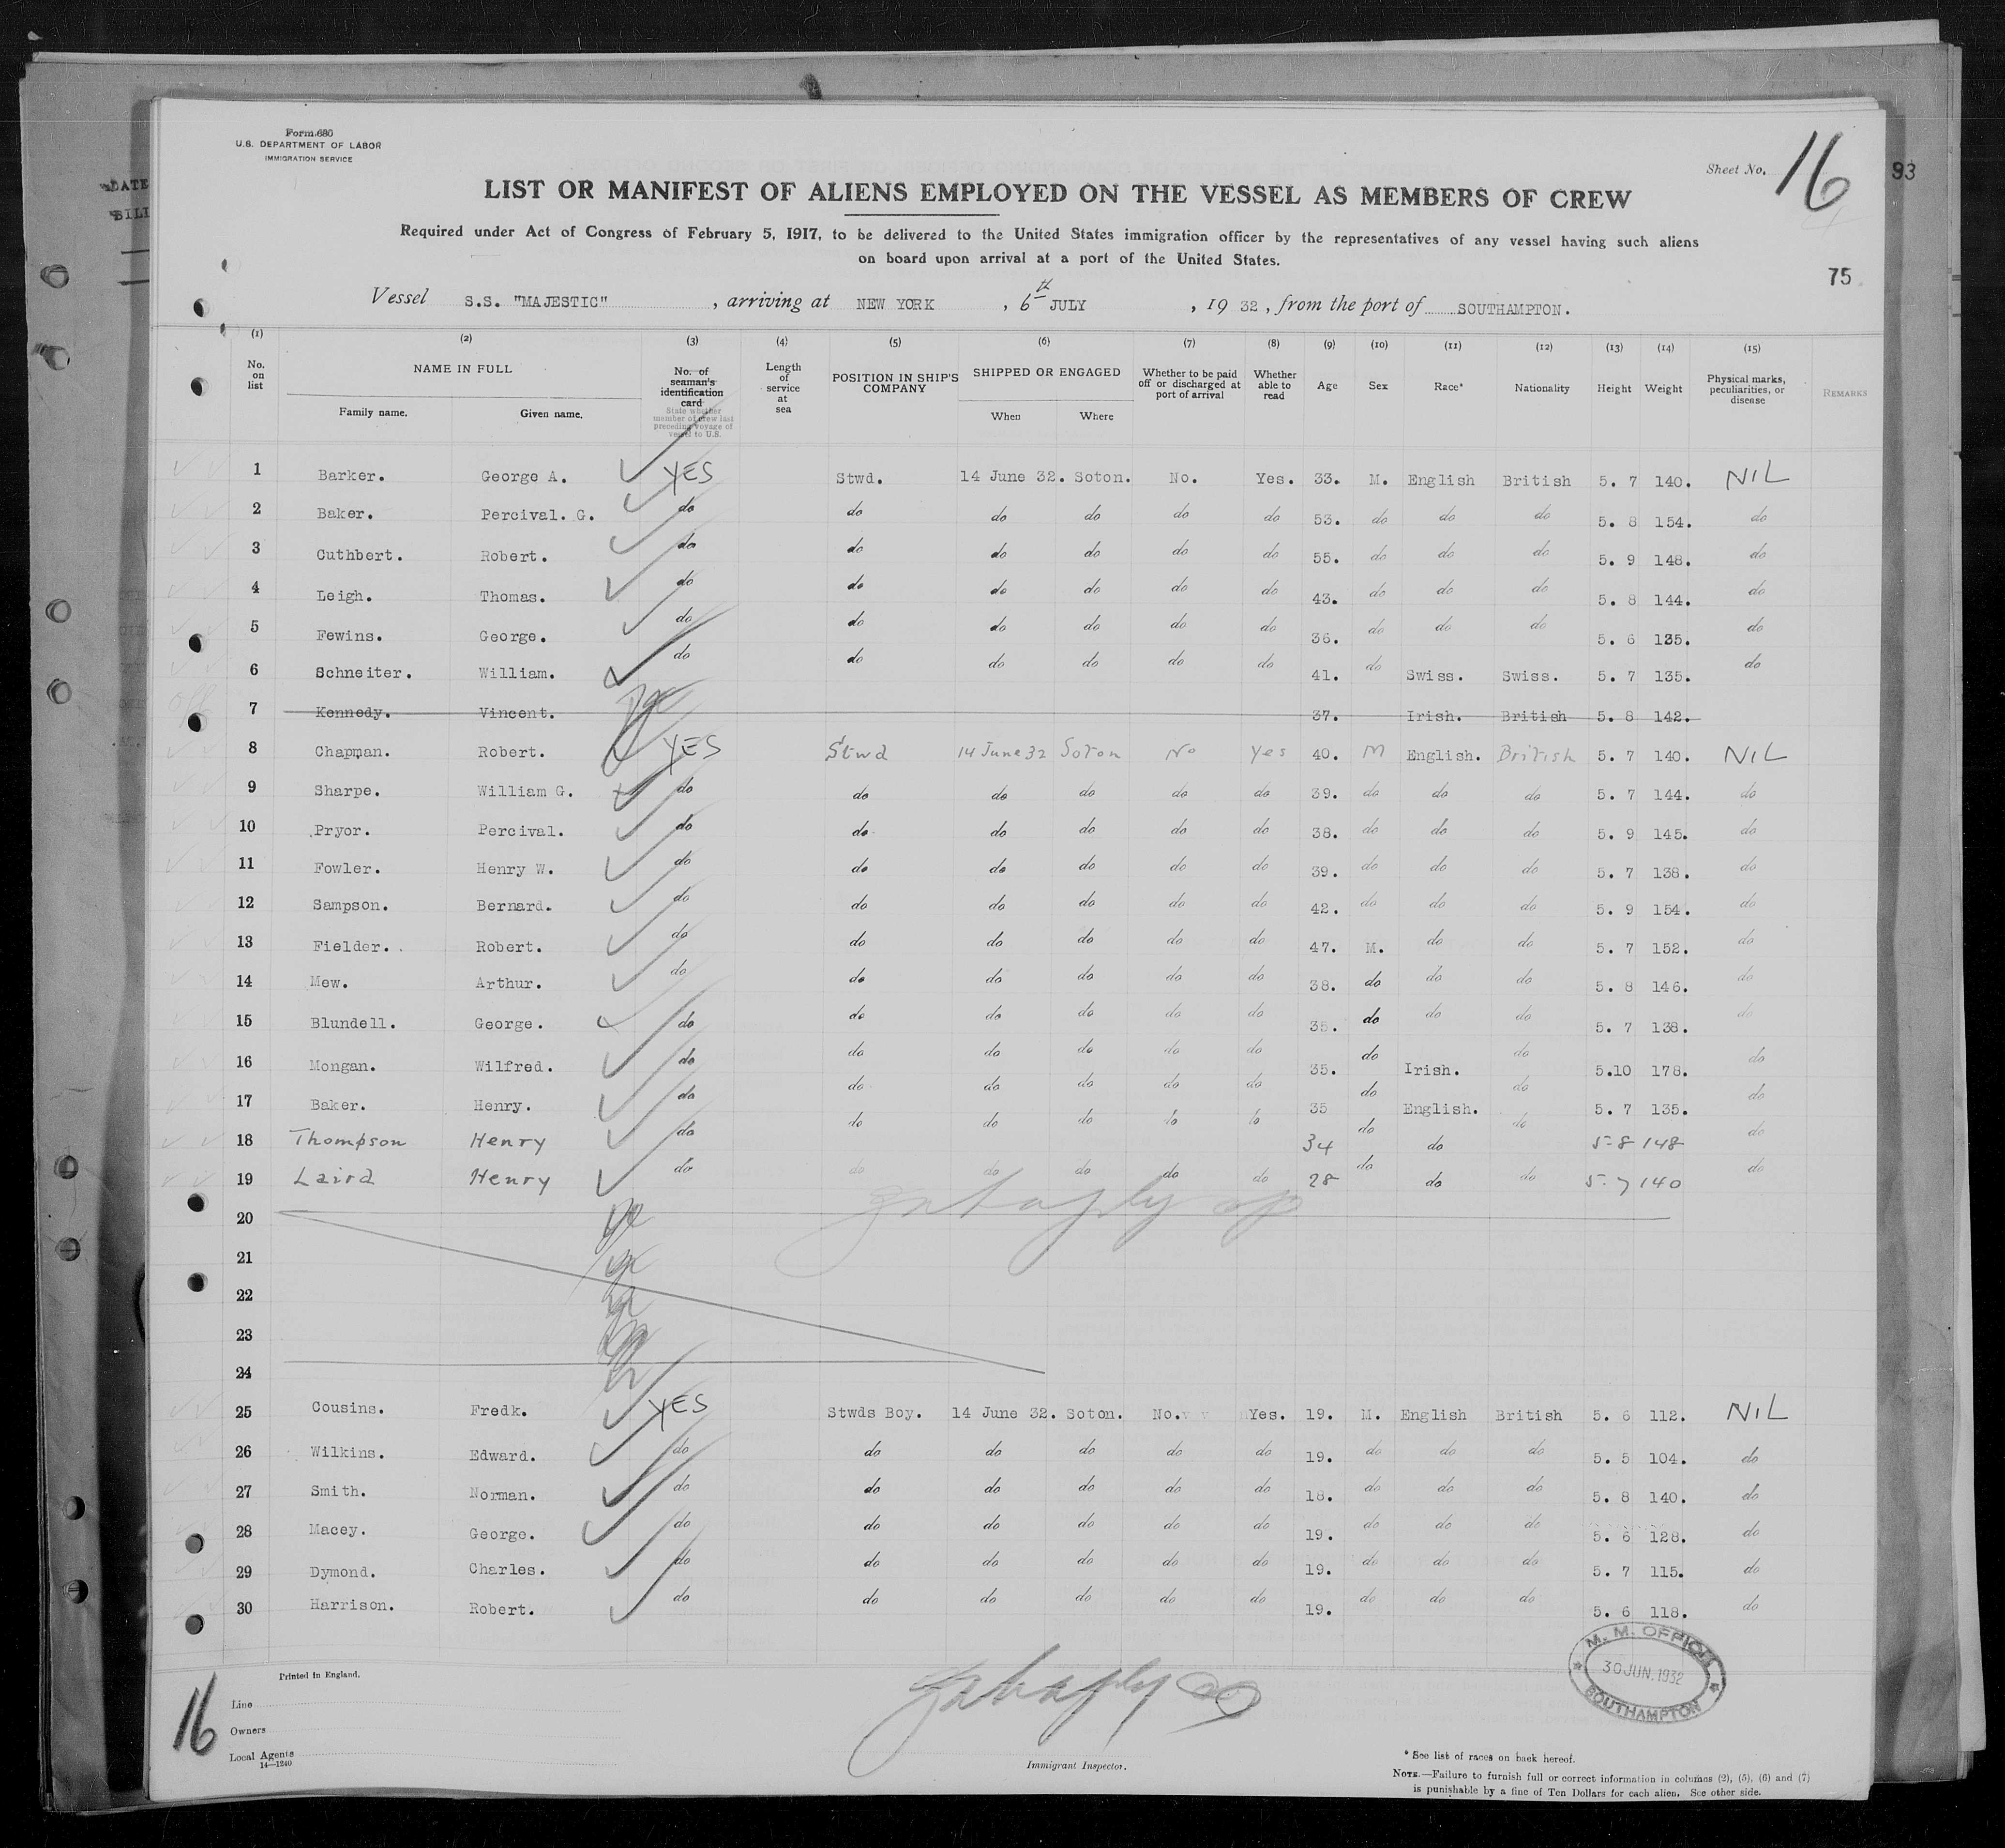 Form 680
U.S. DEPARTMENT OF LABOR
IMMIGRATION SERVICE
Sheet No. 16
93
LIST OR MANIFEST OF ALIENS EMPLOYED ON THE VESSEL AS MEMBERS OF CREW
Required under Act of Congress of February 5, 1917, to be delivered to the United States immigration officer by the representatives of any vessel having such aliens
on board upon arrival at a port of the United States.
75
Vessel S.S. "MAJESTIC", arriving at NEW YORK, 6th JULY, 1932, from the port of SOUTHAMPTON.
(1) (2) (3) (4) (5) (6) (7) (8) (9) (10) (11) (12) (13) (14) (15)
No. on list NAME IN FULL Family name. Given name. No. of seaman's identification card State whether member of crew last preceding voyage of vessel to U.S. Length of service at sea POSITION IN SHIP'S COMPANY SHIPPED OR ENGAGED When Where Whether to be paid off or discharged at port of arrival Whether able to read Age Sex Race* Nationality Height Weight Physical marks, peculiarities, or disease REMARKS
1 Barker. George A. YES Stwd. 14 June 32. Soton. No. Yes. 33. M. English British 5. 7 140. NIL
2 Baker. Percival. G. do do do do do do 53. do do do 5. 8 154. do
3 Cuthbert. Robert. do do do do do do 55. do do do 5. 9 148. do
4 Leigh. Thomas. do do do do do do 43. do do do 5. 8 144. do
5 Fewins. George. do do do do do do 36. do do do 5. 6 135. do
6 Schneiter. William. do do do do do do 41. do Swiss. Swiss. 5. 7 135. do
7 Kennedy. Vincent. 37. Irish. British 5. 8 142.
8 Chapman. Robert. YES Stwd 14 June 32 Soton No Yes 40. M English. British 5. 7 140. NIL
9 Sharpe. William G. do do do do do do 39. do do do 5. 7 144. do
10 Pryor. Percival. do do do do do do 38. do do do 5. 9 145. do
11 Fowler. Henry W. do do do do do do 39. do do do 5. 7 138. do
12 Sampson. Bernard. do do do do do do 42. do do do 5. 9 154. do
13 Fielder. Robert. do do do do do do 47. M. do do 5. 7 152. do
14 Mew. Arthur. do do do do do do 38. do do do 5. 8 146. do
15 Blundell. George. do do do do do do 35. do do do 5. 7 138. do
16 Mongan. Wilfred. do do do do do do 35. do Irish. do 5.10 178. do
17 Baker. Henry. do do do do do do 35 do English. do 5. 7 135. do
18 Thompson Henry do do do do do do 34 do do do 5-8 148 do
19 Laird Henry do do do do do do 28 do do do 5-7 140 do
20
21
22
23
24
25 Cousins. Fredk. YES Stwds Boy. 14 June 32. Soton. No. Yes. 19. M. English British 5. 6 112. NIL
26 Wilkins. Edward. do do do do do do 19. do do do 5. 5 104. do
27 Smith. Norman. do do do do do do 18. do do do 5. 8 140. do
28 Macey. George. do do do do do do 19. do do do 5. 6 128. do
29 Dymond. Charles. do do do do do do 19. do do do 5. 7 115. do
30 Harrison. Robert. do do do do do do 19. do do do 5. 6 118. do
M. M. OFFICE
30 JUN. 1932
SOUTHAMPTON
Printed in England.
16
Line
Owners
Local Agents
14—1240
Immigrant Inspector.
* See list of races on back hereof.
NOTE.—Failure to furnish full or correct information in columns (2), (5), (6) and (7)
is punishable by a fine of Ten Dollars for each alien. See other side.